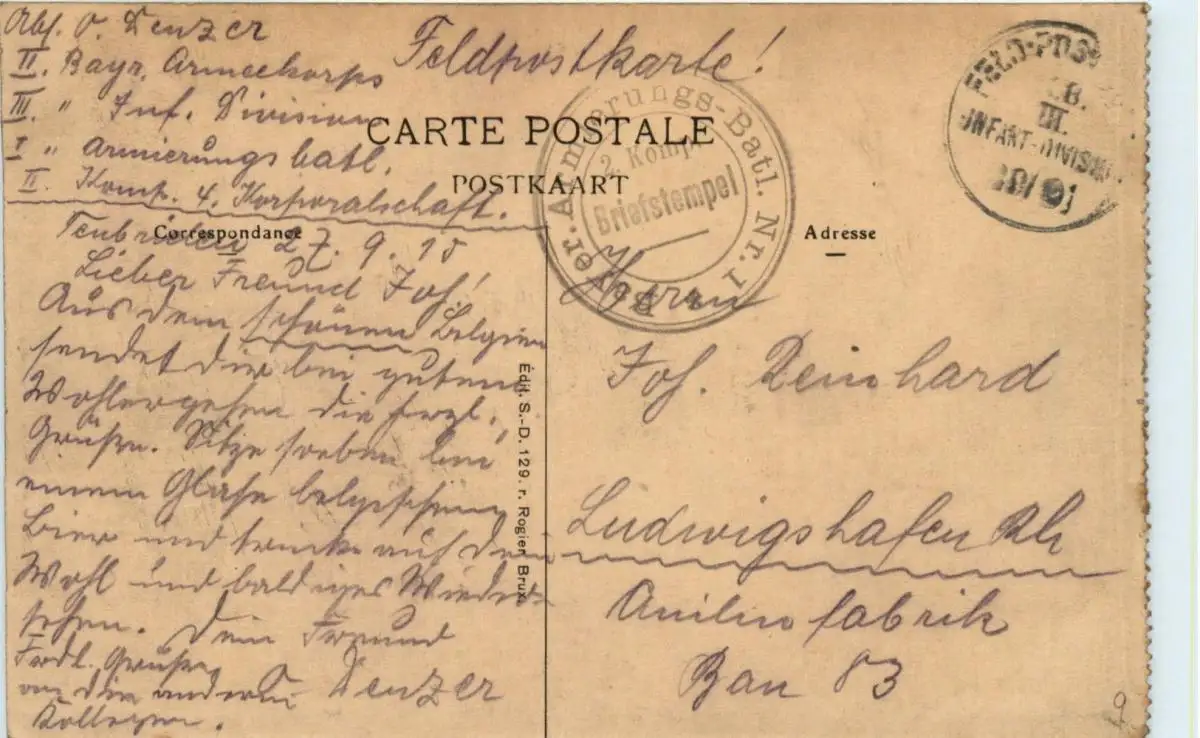 Abs. O. Denzer
II. Bayr. Armeekorps
III. " Inf. Division
I " Armierungsbatl.
II. Komp. 4. Korporalschaft.
Feldpostkarte!
CARTE POSTALE
POSTKAART
Correspondance
Adresse
FELD-POST
III.
INFANT-DIVISION
Armierungs-Batl. Nr. 1
2. Komp.
Briefstempel
27. 9. 15
Lieber Freund Joh!
Aus dem schönen Belgien
sendet dir bei gutem
Wohlergehen die herzl.
Grüße. Sitze soeben bei
einem Glase belgischem
Bier und trinke auf dein
Wohl und baldiges Wieder-
sehen. Dein Freund
Denzer
Frdl. Grüße
an die andern
Kollegen.
Édit. S.-D. 129. r. Rogier Brux.
Herrn
Joh. Deinhard
Ludwigshafen Rh
Anilinfabrik
Bau 83
9